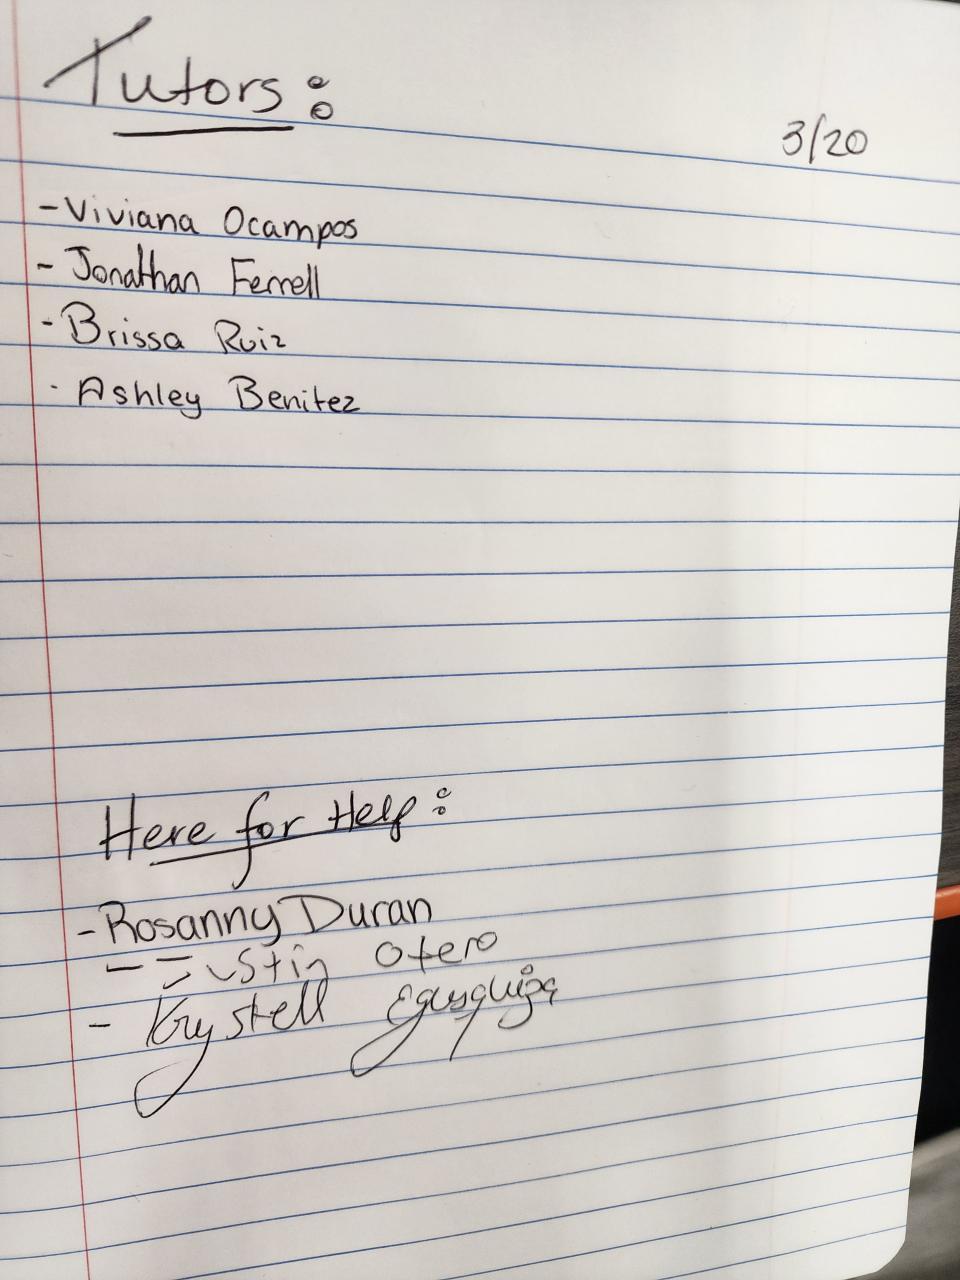 Tutors:
3/20
- Viviana Ocampos
- Jonathan Ferrell
- Brissa Ruiz
- Ashley Benitez
Here for Help:
- Rosanny Duran
- Justin Otero
- Krystell Egusquiza